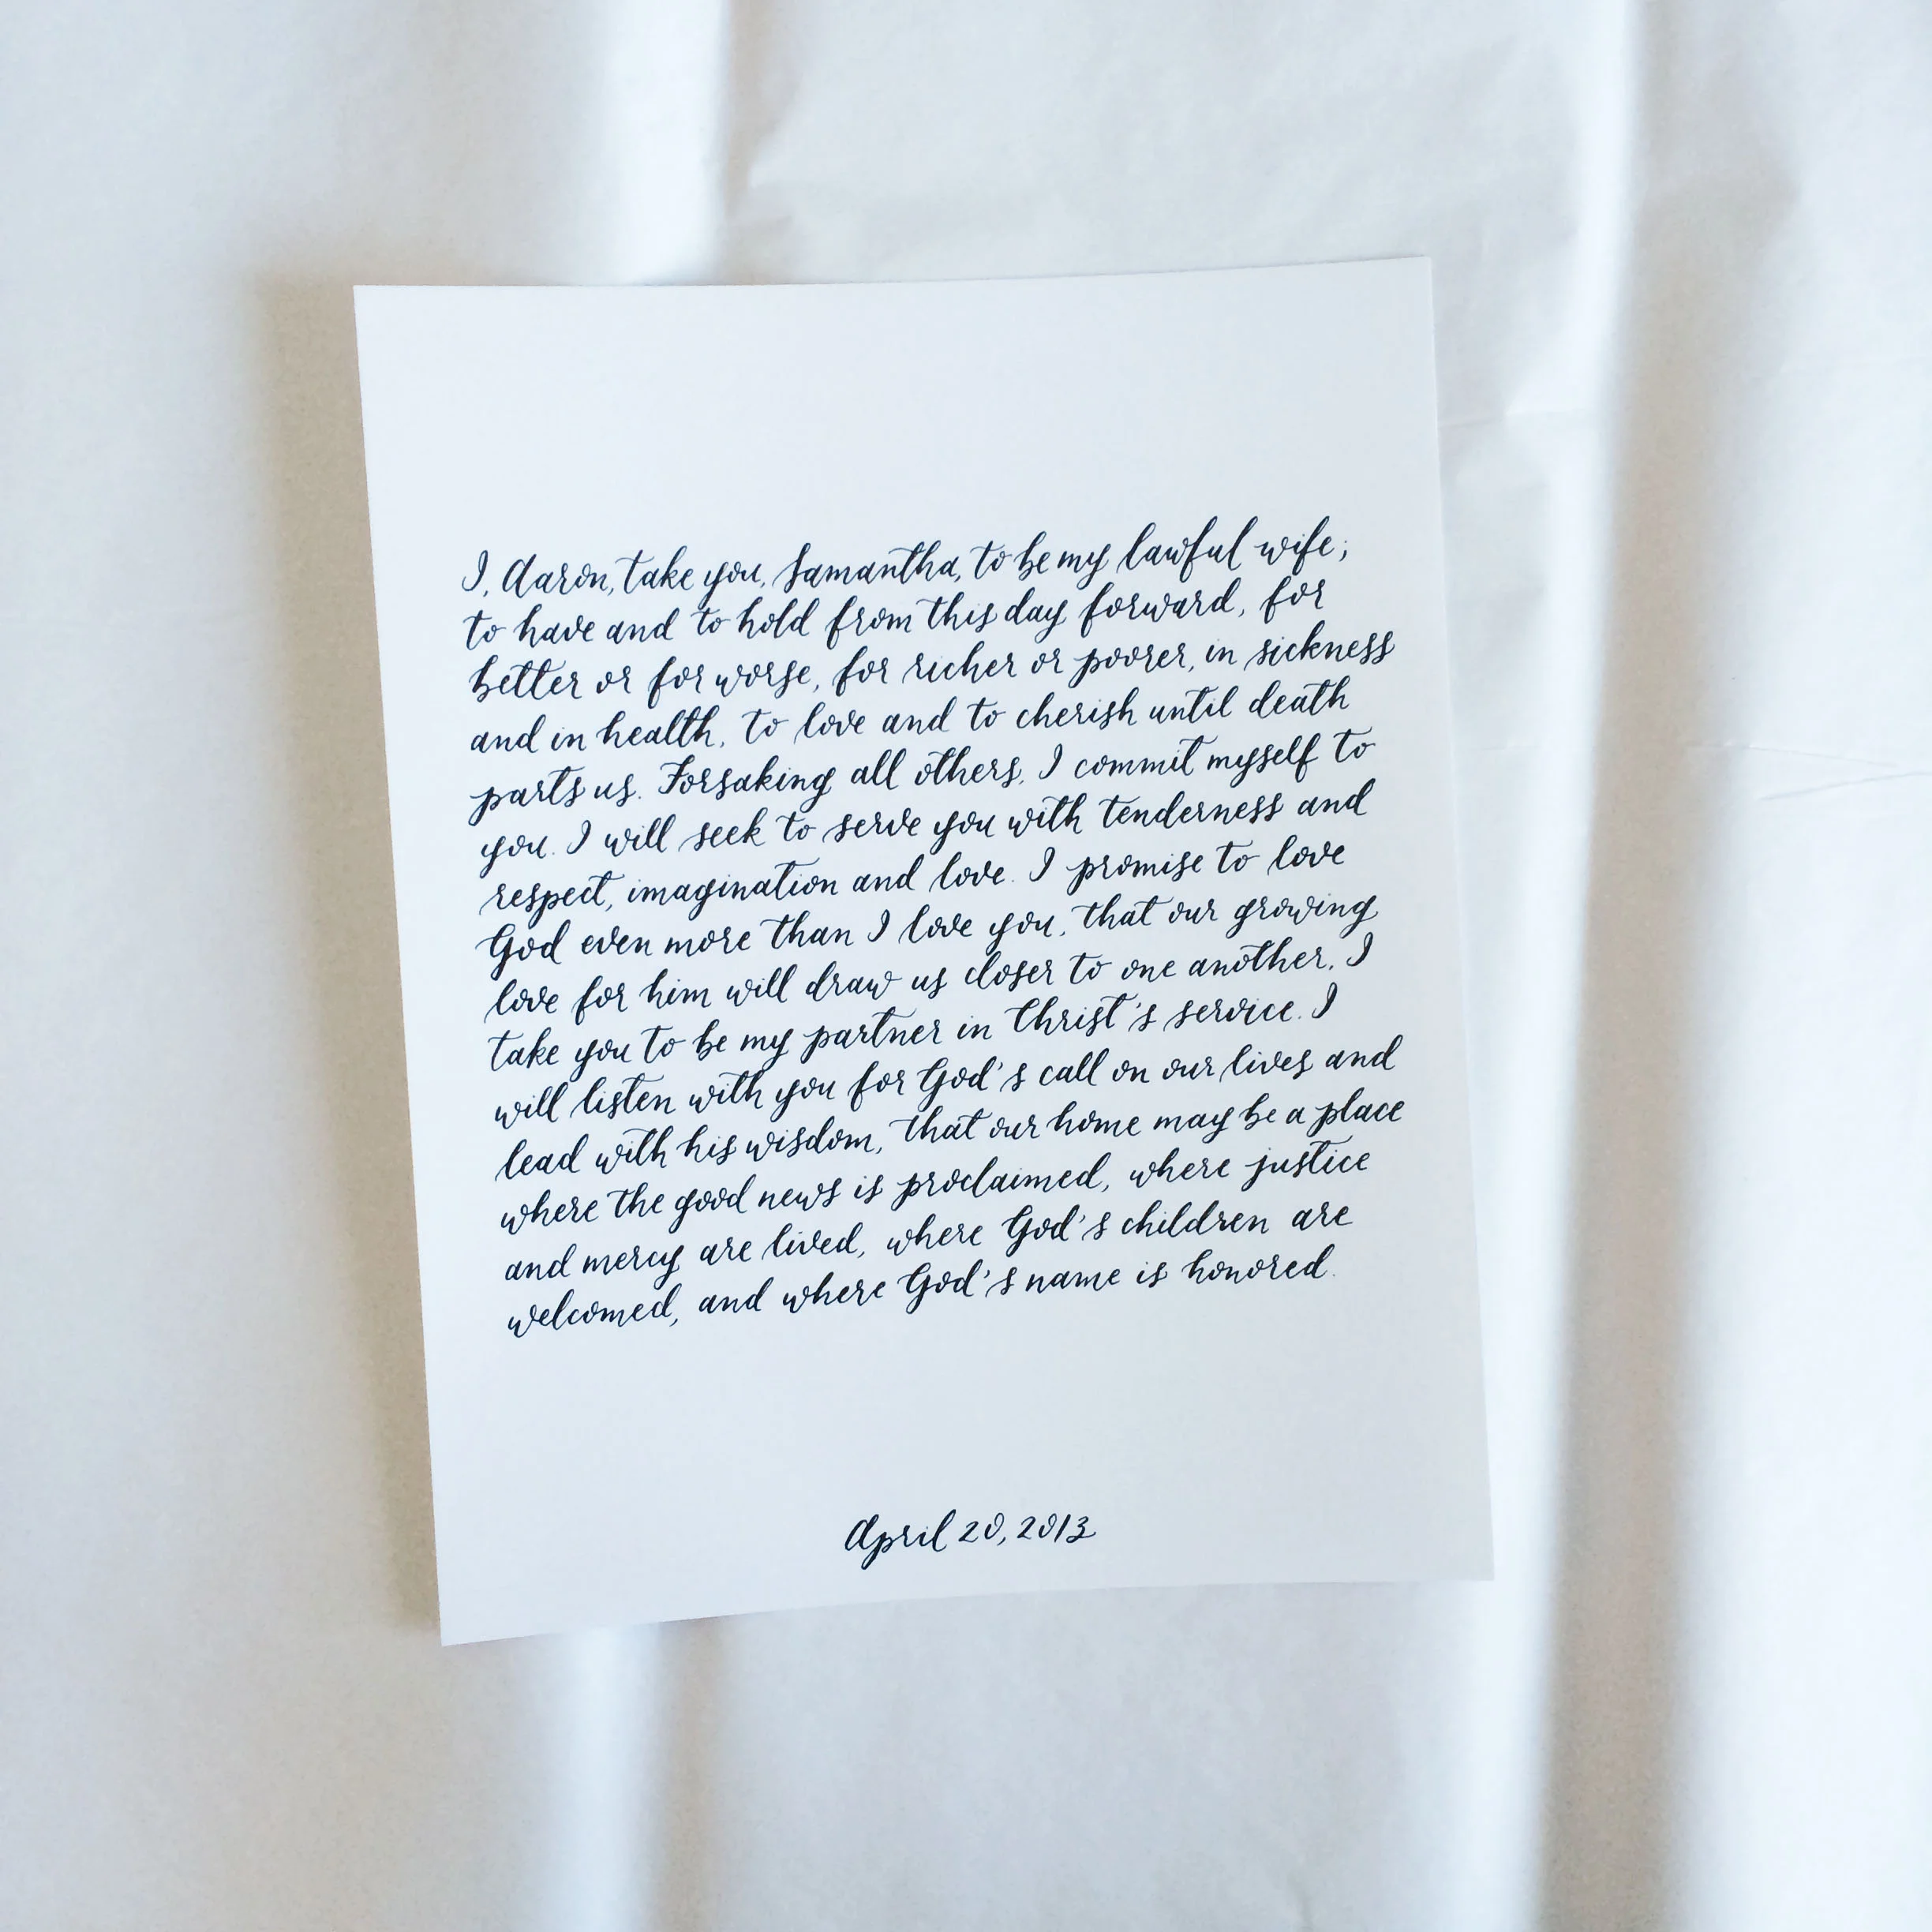 I, Aaron, take you, Samantha, to be my lawful wife;
to have and to hold from this day forward, for
better or for worse, for richer or poorer, in sickness
and in health, to love and to cherish until death
parts us. Forsaking all others, I commit myself to
you. I will seek to serve you with tenderness and
respect, imagination and love. I promise to love
God even more than I love you, that our growing
love for him will draw us closer to one another. I
take you to be my partner in Christ's service. I
will listen with you for God's call on our lives and
lead with his wisdom, that our home may be a place
where the good news is proclaimed, where justice
and mercy are lived, where God's children are
welcomed, and where God's name is honored.
April 20, 2013